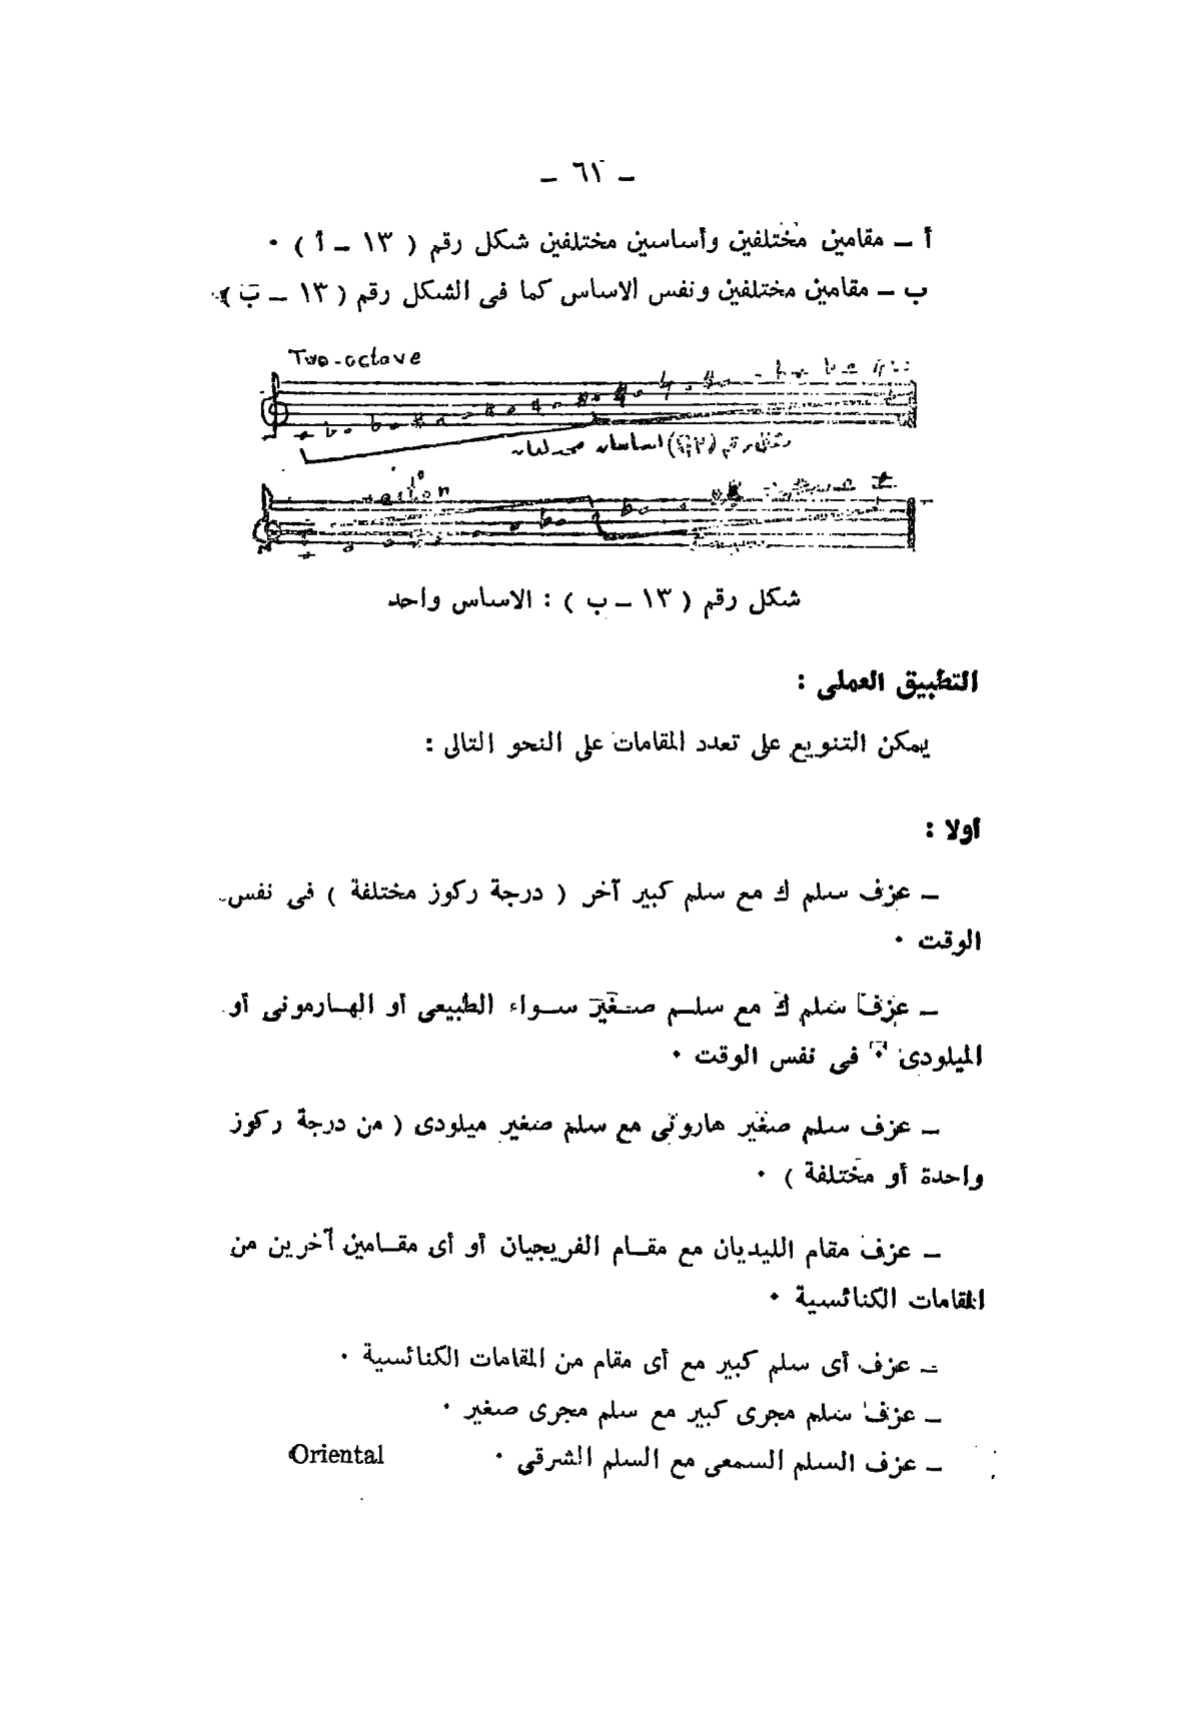 ـ ٦١ ـ
أ ـ مقامين مختلفين وأساسين مختلفين شكل رقم ( ١٣ ـ أ ) ٠
ب ـ مقامين مختلفين ونفس الاساس كما فى الشكل رقم ( ١٣ ـ ب )
Two-octave
شكل رقم اساسان مختلفان
شكل رقم ( ١٣ ـ ب ) : الاساس واحد
التطبيق العملى :
يمكن التنويع على تعدد المقامات على النحو التالى :
اولا :
ـ عزف سلم ك مع سلم كبير آخر ( درجة ركوز مختلفة ) فى نفس
الوقت ٠
ـ عزف سلم ك مع سلـم صـغير سـواء الطبيعى أو الهـارمونى أو
الميلودى ٠ فى نفس الوقت ٠
ـ عزف سلم صغير هارونى مع سلم صغير ميلودى ( من درجة ركوز
واحدة أو مختلفة ) ٠
ـ عزف مقام الليديان مع مقـام الفريجيان أو أى مقـامين آخرين من
المقامات الكنائسية ٠
ـ عزف أى سلم كبير مع أى مقام من المقامات الكنائسية ٠
ـ عزف سلم مجرى كبير مع سلم مجرى صغير ٠
ـ عزف السلم السمعى مع السلم الشرقى ٠ Oriental